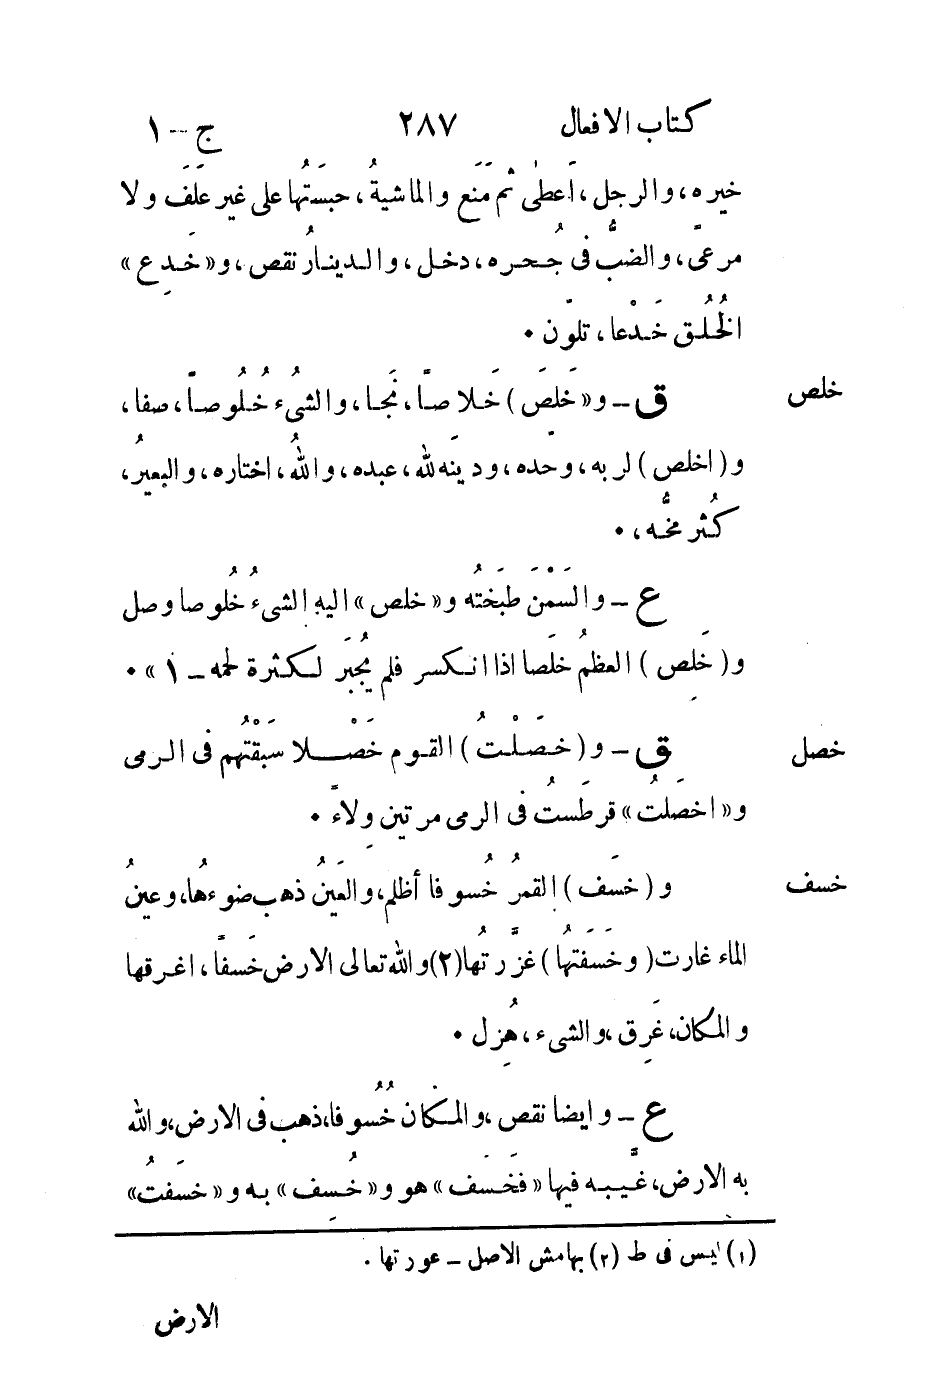 كتاب الافعال ٢٨٧ ج -- ١
خيره، والرجل، اَعطٰى ثُم مَنَع والماشيةُ، حبَستُها على غير عَلَفَ ولا
مرعىً، والضبُّ فى جُحره، دخل، والدينارُ نقص، و« خَدِع »
الخُلُق خَدْعا، تلوّن ٠
خلص ق ـ و« خلَصَ ) خَلاصاً، نَجَا، والشىُء خُلُوصاً، صفا،
و( اخلص ) لربه، وحده، ودينَه لله، عبده، واللهُ، اختاره، والبعيرُ،
كُثر مخُّه، ٠
ع ـ والسَمْنَ طبَختُه و« خلص » اليهِ الشىُء خُلُوصا وصل
و( خلَِص ) العظمُ خلَصا اذا انكسر فلم يُجبَر لكثرة لحمه ـ ١ » ٠
خصل ق ـ و( خصَلْتُ ) القوم خَصْلا سَبَقْتُهم فى الرمى
و« اخصَلتُ » قرطَستُ فى الرمى مرتين وِلاءً ٠
خسف و( خسَف ) القمرُ خُسوفا أظلم، والعَينُ ذهب ضوءهُا، وعينُ
الماء غارت ( وخَسَفتُها ) غزَّرتُها (٢) والله تعالى الارض خَسفاً، اغرقها
والمكان، غَرِق، والشىء، هُزِل ٠
ع ـ وايضا نقص، والمكان خُسُوفا، ذهب فى الارض، والله
به الارض، غيّبه فيها « فَخَسَف » هو و« خُسِف » به و« خسَفتُ »
(١) ليس فى ط (٢) بهامش الاصل ـ عورتها .
الارض